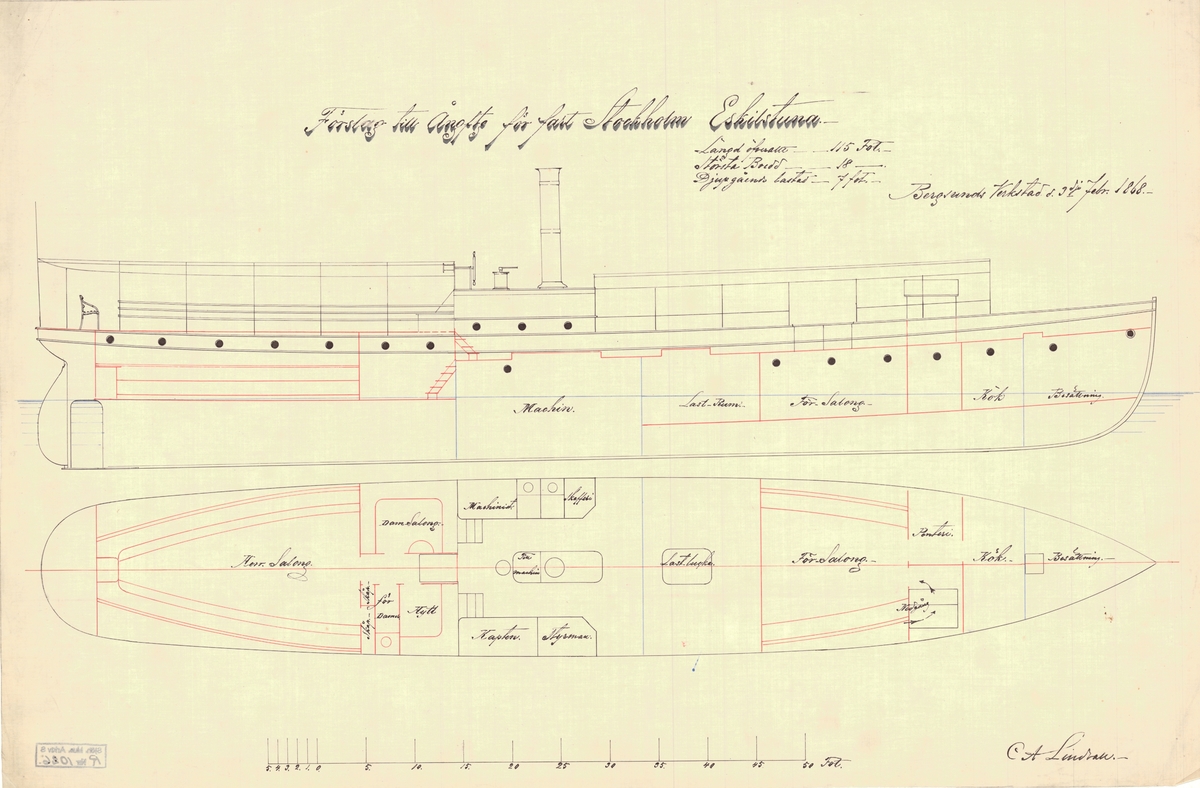 Förslag till Ångftg för fart Stockholm Eskilstuna.
Längd öfverallt 115 Fot.
Största Bredd 18
Djupgående lastad 7 fot.
Bergsunds Verkstad d. 3dje Febr. 1868.
Machin.
Last-Rum.
För-Salong.
Kök
Besättning.
Machinist.
Skafferi
Dam Salong.
Akt. Salong.
Fru machin
Lastlucka.
För-Salong.
Penteri.
Kök.
Besättning.
Skåp.
Skåp.
för Damer
Hytt
Nedgång
Kapten.
Styrman.
5. 4. 3. 2. 1. 0. 5. 10. 15. 20 25 30 35. 40 45. 50 Fot.
C A Lindvall.